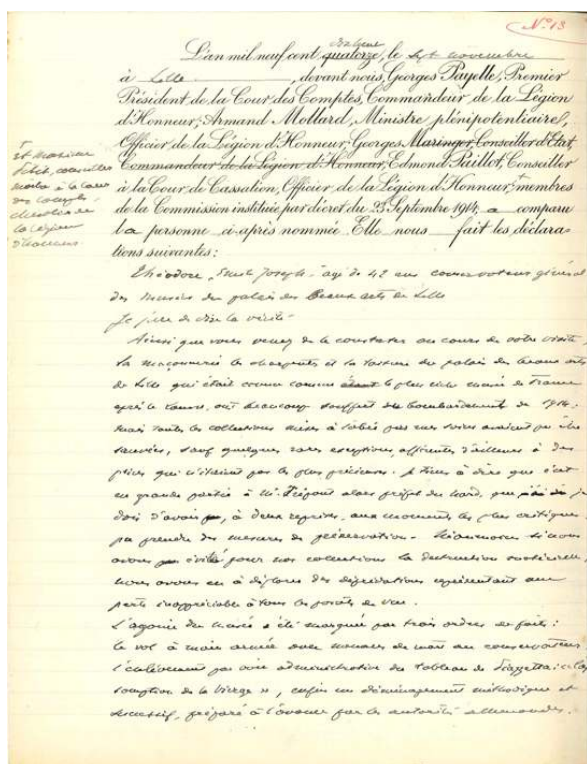 N° 13
L'an mil neuf cent quatorze, le sept novembre
dix huit
à Lille, devant nous, Georges Payelle, Premier
Président de la Cour des Comptes, Commandeur de la Légion
d'Honneur; Armand Mollard, Ministre plénipotentiaire,
Officier de la Légion d'Honneur; Georges Maringer, Conseiller d'Etat,
Commandeur de la Légion d'Honneur; Edmond Paillot, Conseiller
à la Cour de Cassation, Officier de la Légion d'Honneur, + membres
de la Commission instituée par décret du 23 Septembre 1914, a comparu
la personne ci-après nommée. Elle nous fait les déclara-
tions suivantes:
et
maître à la Cour
des Comptes,
chevalier de
la Légion
d'honneur
Théodore, Emile Joseph, âgé de 42 ans conservateur général
des Musées du palais des Beaux arts de Lille
Je jure de dire la vérité.
Ainsi que vous venez de le constater au cours de votre visite,
la maçonnerie les charpentes et la toiture du palais des beaux arts
de Lille qui était connu comme le plus riche musée de France
après le Louvre, ont beaucoup souffert du bombardement de 1914.
Mais toutes les collections mises à l'abri par mes soins avaient pu être
sauvées, sauf quelques rares exceptions afférentes d'ailleurs à des
pièces qui n'étaient pas les plus précieuses. Je tiens à dire que c'est
en grande partie à M. Trépont alors préfet du Nord, que je
dois d'avoir, à deux reprises, aux moments les plus critiques,
pu prendre des mesures de préservation. Néanmoins si nous
avons évité pour nos collections la destruction
nous avons eu à déplorer des déprédations représentant une
perte inappréciable à tous les points de vue.
L'agonie du musée a été marquée par trois ordres de faits:
le vol à main armée avec menaces de mort au conservateur
l'enlèvement par voie administrative du tableau de Piazzetta: "l'As
somption de la Vierge", enfin un déménagement méthodique et
successif, préparé à l'avance par les autorités allemandes.